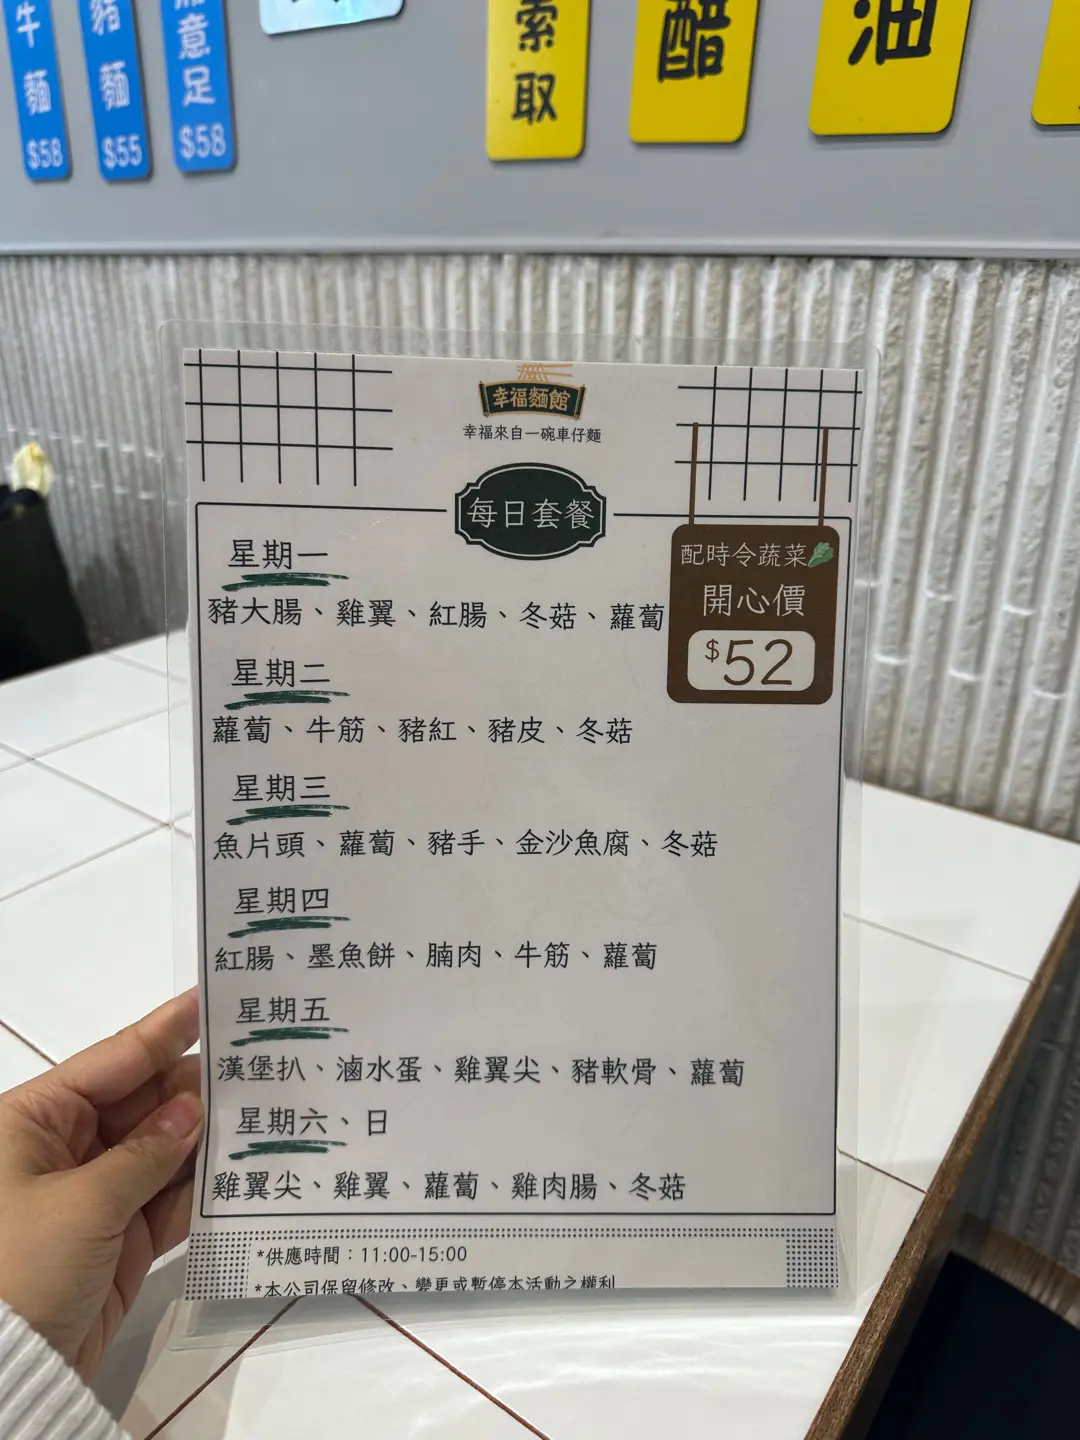 牛麵
$58
豬麵
$55
意足
$58
索取
醋
油
幸福麵館
幸福來自一碗車仔麵
每日套餐
配時令蔬菜
開心價
$52
星期一
豬大腸、雞翼、紅腸、冬菇、蘿蔔
星期二
蘿蔔、牛筋、豬紅、豬皮、冬菇
星期三
魚片頭、蘿蔔、豬手、金沙魚腐、冬菇
星期四
紅腸、墨魚餅、腩肉、牛筋、蘿蔔
星期五
漢堡扒、滷水蛋、雞翼尖、豬軟骨、蘿蔔
星期六、日
雞翼尖、雞翼、蘿蔔、雞肉腸、冬菇
*供應時間：11:00-15:00
*本公司保留修改、變更或暫停本活動之權利